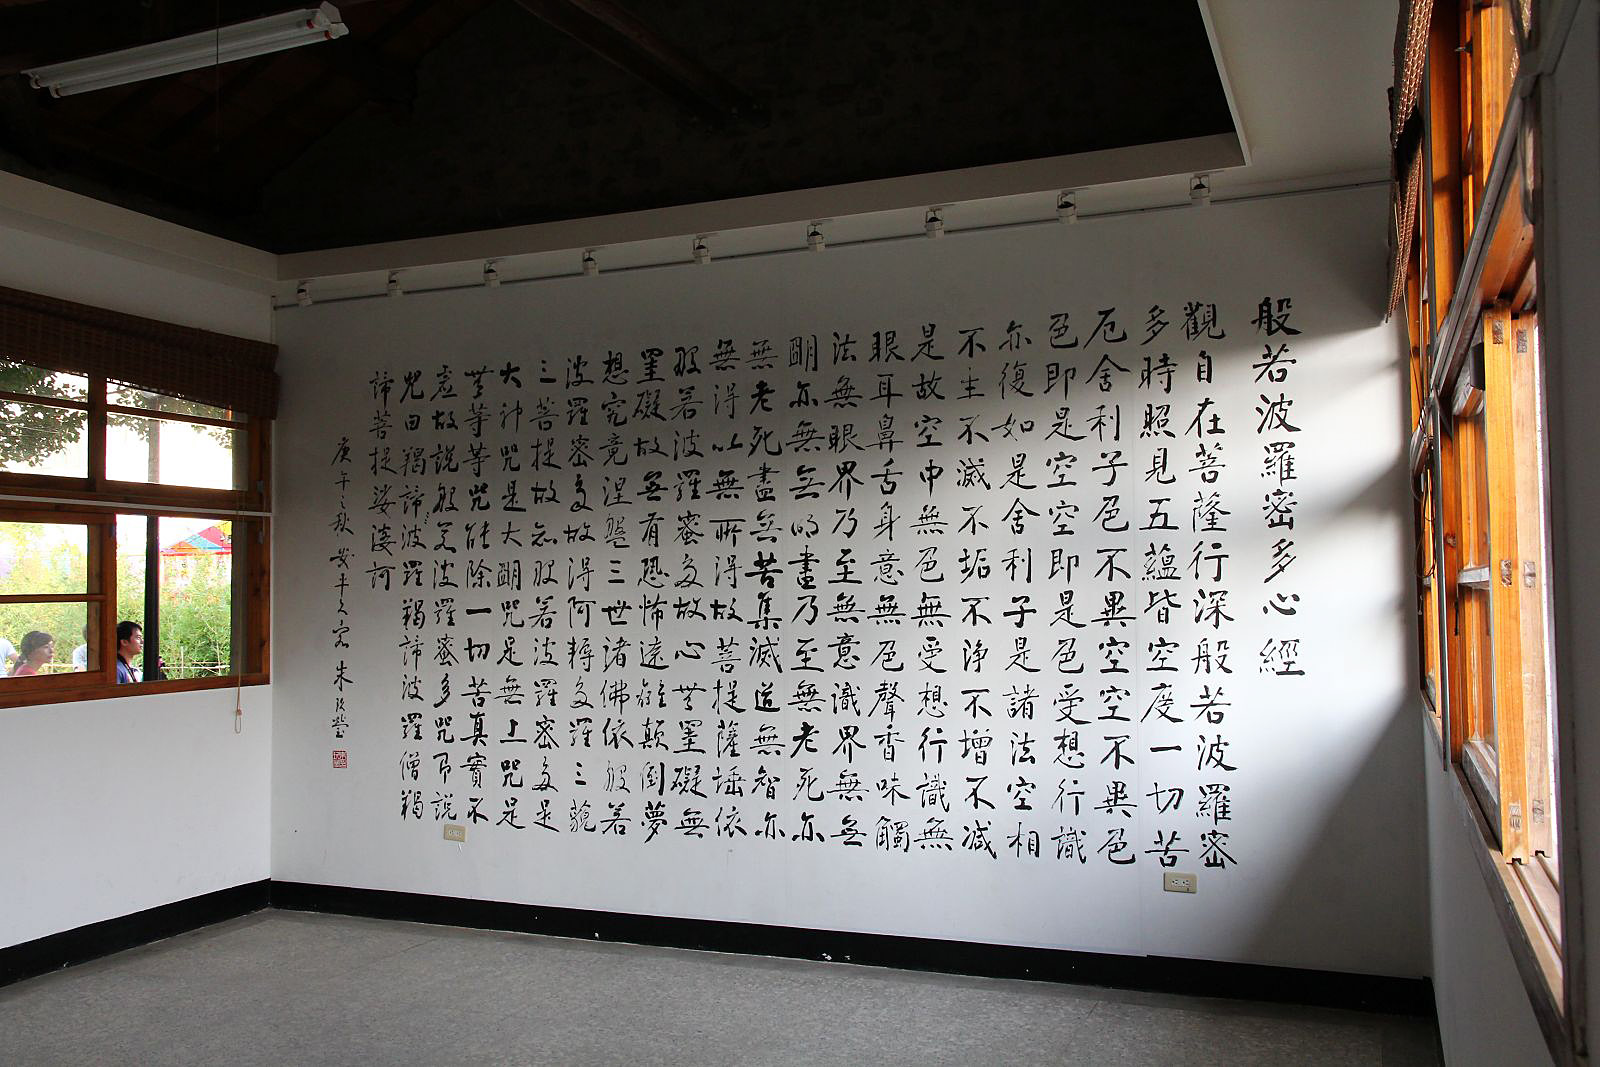 般若波羅密多心經
觀自在菩薩行深般若波羅密
多時照見五蘊皆空度一切苦
厄舍利子色不異空空不異色
色即是空空即是色受想行識
亦復如是舍利子是諸法空相
不生不滅不垢不淨不增不減
是故空中無色無受想行識無
眼耳鼻舌身意無色聲香味觸
法無眼界乃至無意識界無無
明亦無無明盡乃至無老死亦
無老死盡無苦集滅道無智亦
無得以無所得故菩提薩埵依
般若波羅蜜多故心無罣礙無
罣礙故無有恐怖遠離顛倒夢
想究竟涅盤三世諸佛依般若
波羅密多故得阿耨多羅三藐
三菩提故知般若波羅密多是
大神咒是大明咒是無上咒是
無等等咒能除一切苦真實不
虛故說般若波羅蜜多咒即說
咒曰羯諦波羅羯諦波羅僧羯
諦菩提娑婆訶
庚午之秋安平久客朱玖瑩